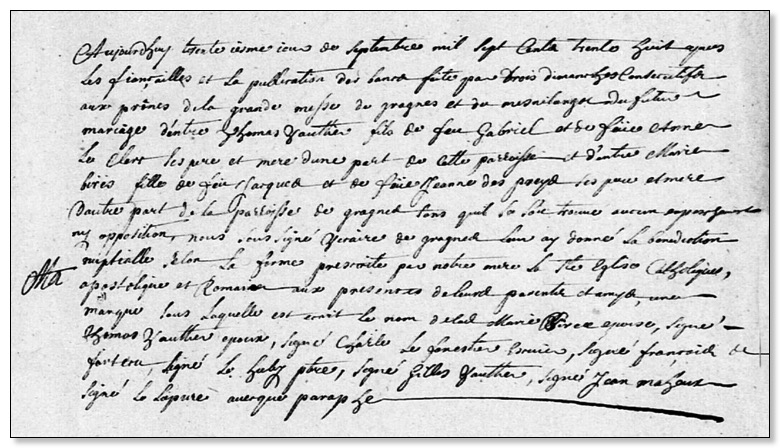 Aujourdhuy trente iesme iour de septembre mil sept Cents trente huit apres
les fiançailles et la publication des bancs faite par trois dimanches Consecutifs
aux prônes de la grande messe de gragnes et du mesnilangot du futur
mariage d'entre Thomas Vauthier fils de feu Gabriel et de feüe Anne
Le Clerc ses pere et mere dune part de cette parroisse et d'autre Marie
bires fille de feu Jacques et de feüe Jeanne des ses pere et mere
d'autre part de la parroisse de gragnes sans quil se soit trouvé aucun empeschement
ny opposition, nous sous signé vicaire de gragnes leur ay donné la benediction
nuptialle selon la forme prescrite par notre mere la Ste Eglise Catholique,
apostolique et Romaine aux presences de leurs parents et amys, une
marque sous laquelle est écrit le nom de lad Marie Biree epouse, signé
thomas Vauthier epoux, signé Charle Le fenestier Ecuier, signé françois de
forteru, signé Le pbtre, signé Gilles Vauthier, signé Jean maheux
signé Le Lapuré avecque paraphe